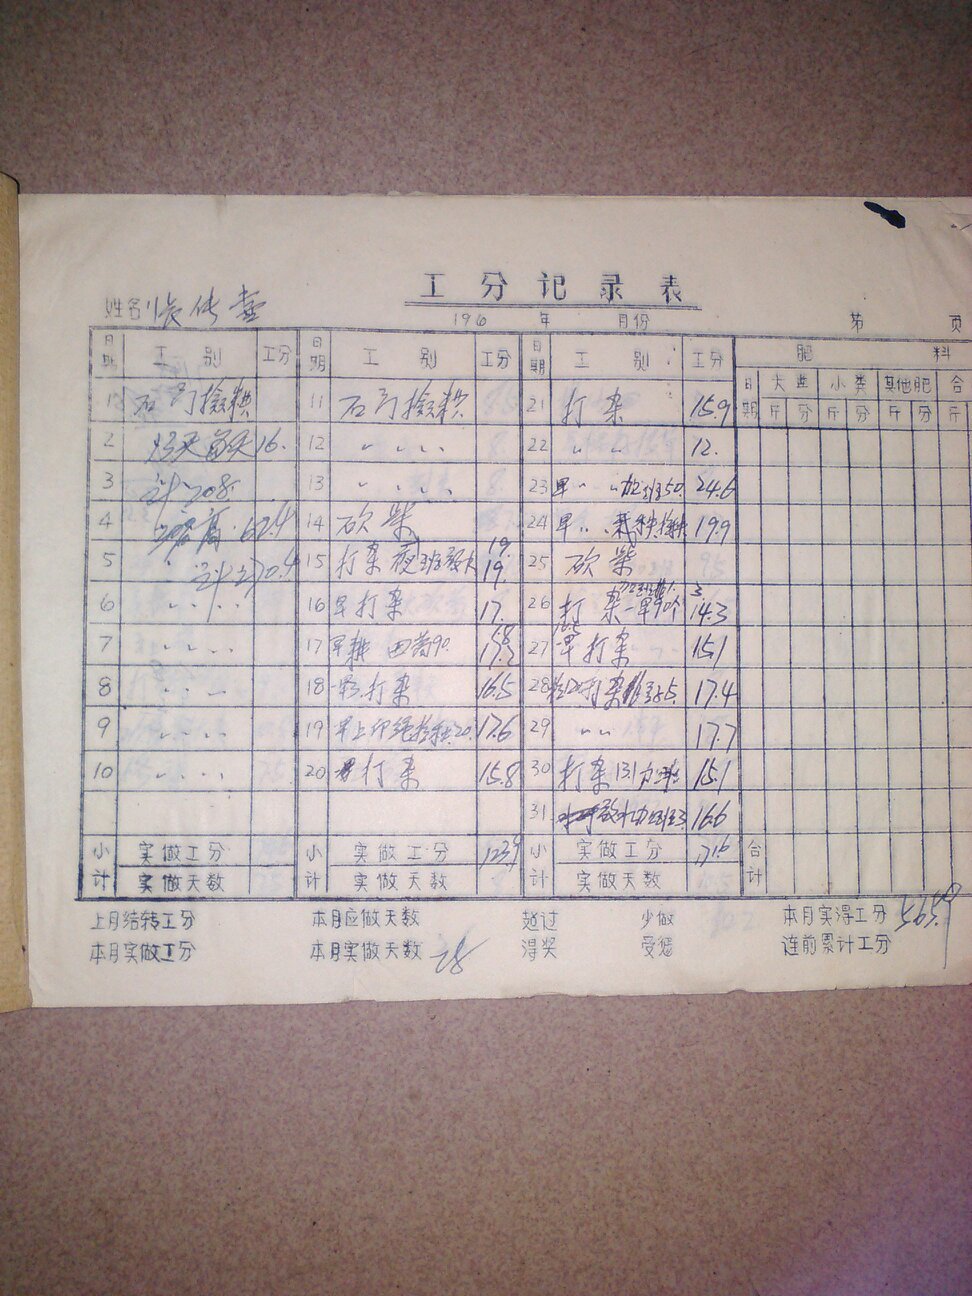 工分记录表
姓名 张传
196 年 月份 第 页
日期 工别 工分 日期 工别 工分 日期 工别 工分 肥料
日期 大粪 小粪 其他肥 合
斤 分 斤 分 斤 分 斤
1 石 11 石 21 打杂 15.9
2 13天 每天 16. 12 〃 〃 〃 〃 22 〃 〃 12.
3 计 208. 13 〃 〃 〃 〃 23 早 〃 〃 加班50. 24.6
4 62.4 14 砍柴 19. 24 早 〃 〃 19.9
5 〃 计270.4 15 打杂 夜班 19. 25 砍柴
6 〃 〃 〃 〃 16 早打杂 17. 26 打杂 一早90个 14.3
7 〃 〃 〃 〃 17 早耕 田 90. 27 早打杂 15.1
8 〃 〃 〃 18 打杂 16.5 28 打杂 17.4
9 〃 〃 〃 〃 19 早上 20. 17.6 29 〃 〃 17.7
10 〃 〃 〃 〃 20 打杂 15.8 30 打杂 13.1 加班 15.1
31 加班 16.6
小计 实做工分 小计 实做工分 123.9 小计 实做工分 171.6 合计
实做天数 实做天数 实做天数
上月结转工分 本月应做天数 超过 少做 本月实得工分 565.9
本月实做工分 本月实做天数 28 得奖 受惩 连前累计工分